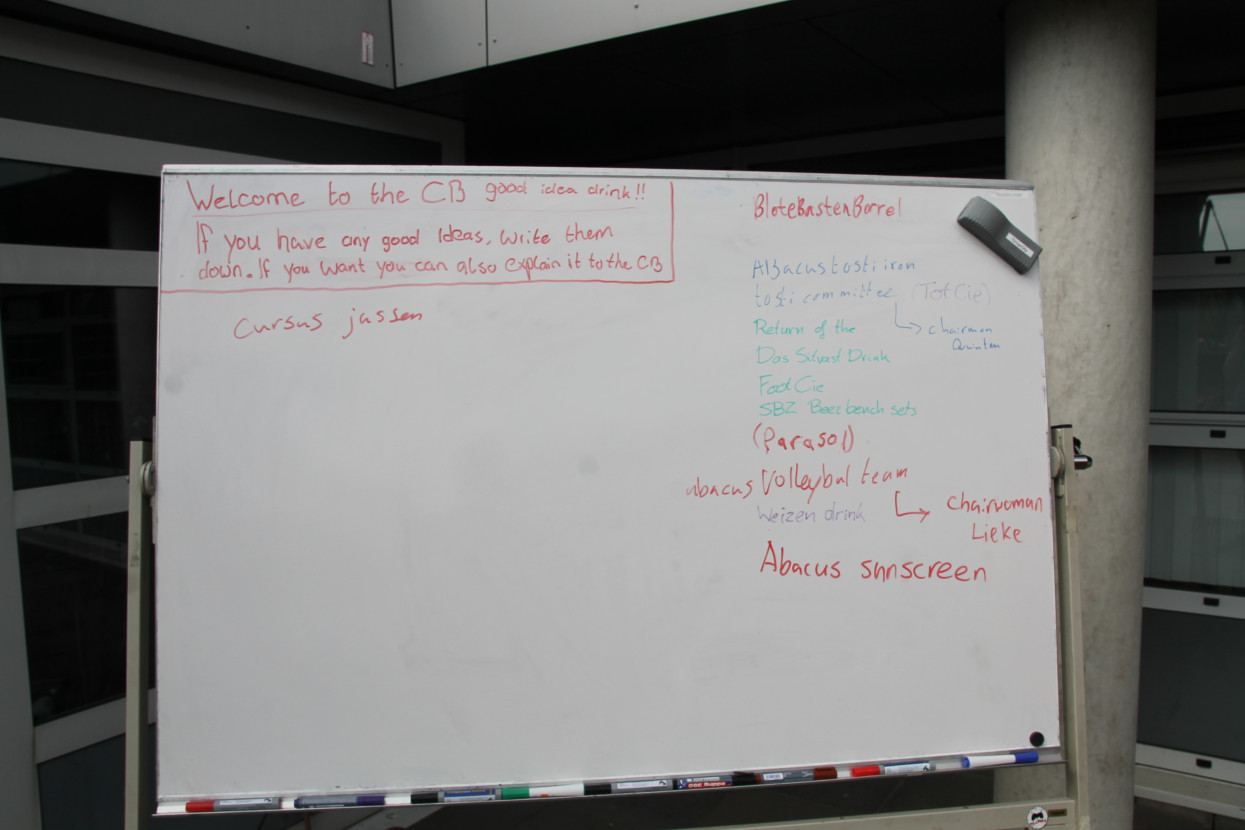 Welcome to the CB good idea drink!!
If you have any good Ideas, write them
down. If you want you can also explain it to the CB
cursus jassen
BloteBastenBorrel
Abacus tosti iron
tosti committee (TotCie)
chairman
Quinten
Return of the
Das Silvast Drink
FootCie
SBZ Beerbench sets
(Parasol)
abacus Volleybal team
Chairwoman
Lieke
Weizen drink
Abacus sunscreen